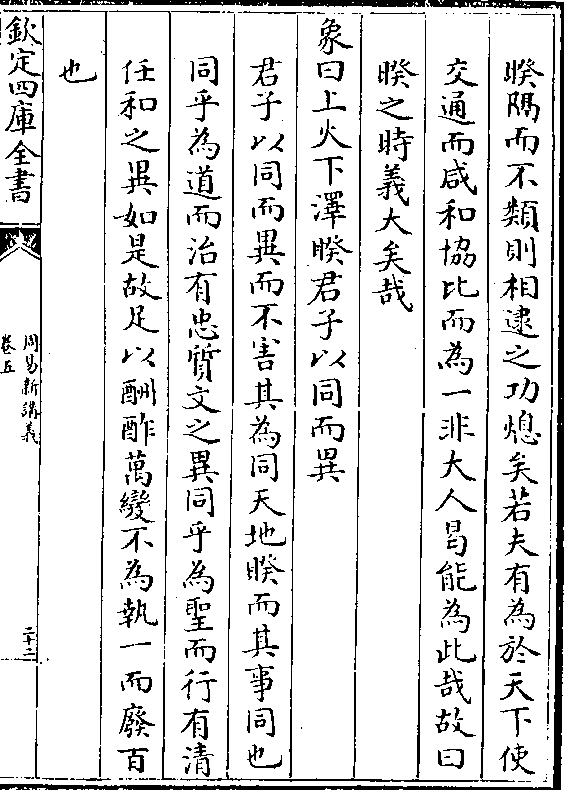 睽隔而不類則相逮之功熄矣若夫有為於天下使
交通而咸和協比而為一非大人曷能為此哉故曰
睽之時義大矣哉
象曰上火下澤睽君子以同而異
君子以同而異而不害其為同天地睽而其事同也
同乎為道而治有忠質文之異同乎為聖而行有清
任和之異如是故足以酬酢萬變不為執一而廢百
也
欽定四庫全書
周易新講義
卷五
二十二